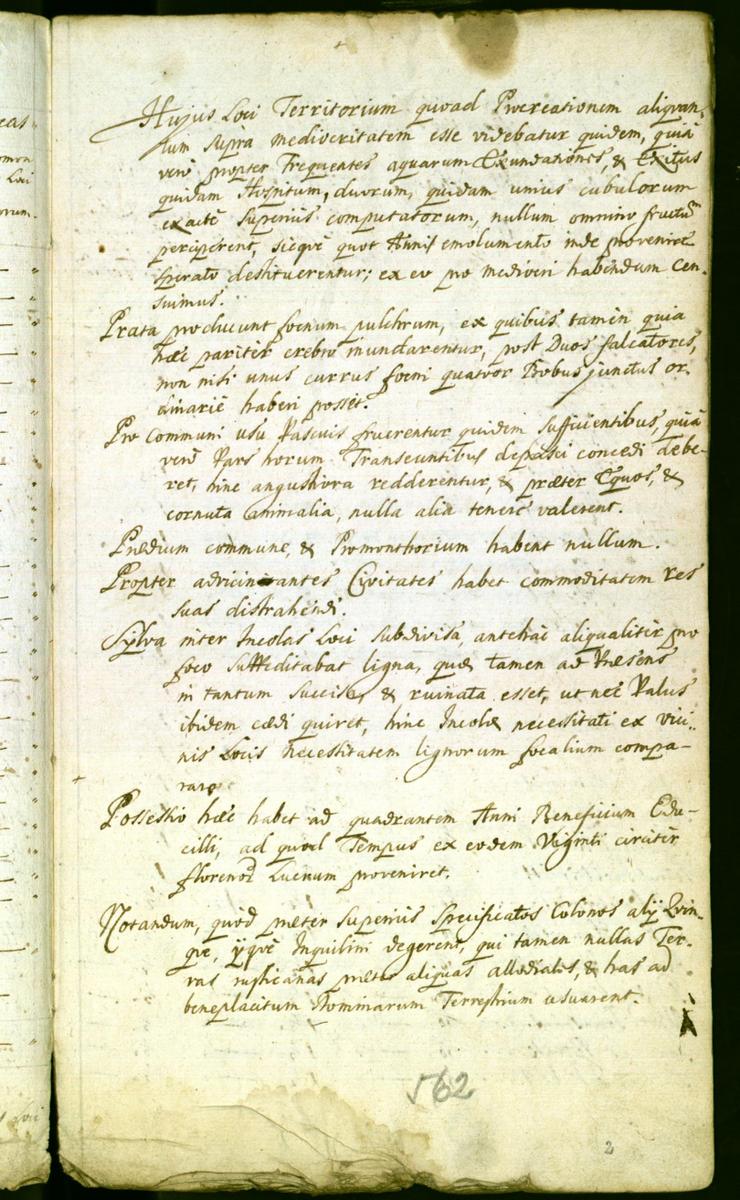 Hujus Loci Territorium quoad Procreationem aliqvan-
tum supra mediocritatem esse videbatur quidem, quia
verò propter Frequentes aquarum Exundationes, & Exitus
quidam Hospitum, duorum, quidam unius cubulorum
exactè superius computatorum, nullum omnino fructũ
perciperent, sicqvè quot Annis emolumento inde provenire
sperato destituerentur; ex eo pro mediocri habendum cen-
suimus.
Prata producunt foenum pulchrum, ex quibus tamen quia
haec pariter crebro inundarentur, post Duos falcatores,
non nisi unus currus foeni quatuor Bobus junctus or-
dinariè haberi posset.
Pro Communi usu Pascuis fruerentur quidem sufficientibus, quia
verò Pars horum Transeuntibus depasci concedi debe-
ret, hinc angustiora redderentur, & praeter Equos, &
cornuta Animalia, nulla alia tenere valerent.
Praedium commune, & Promonthorium habent nullum.
Propter advicinantes Civitates habet commoditatem res
suas distrahendi.
Sylva inter Incolas Loci subdivisa, antehac aliqualiter pro
foco suffeditabat ligna, quae tamen ad Praesens
in tantum succisa, & ruinata esset, ut nec Palus
ibidem caedi quiret, hinc Incolae necessitati ex vici-
nis Locis necessitatem lignorum focalium compa-
rare
Possessio haec habet ad quadrantem Anni Beneficium Edu-
cilli, ad quod Tempus ex eodem Viginti circiter
florenor Lucrum proveniret.
Notandum, quòd praeter superius Specificatos Colonos alij Qvin-
que, ijqvè Inquilini degerent, qui tamen nullas Ter-
ras rusticanas praeter aliquas allodiales, & has ad
beneplacitum Dominarum Terrestrium usuarent.
562
2